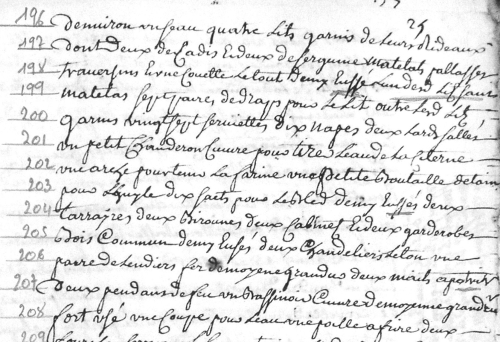 25
196 demuiron un seau quatre Lits garnis de Leurs Rideaux
197 dont deux de Cadis Et deux de Sergume matelas paillasses
198 traversins Et une Couette Le tout demy Eussé
199 matelas sept paires de draps pour Le Lit outre Lesd Lit
200 garnis vingt sept serviettes dix napes deux
201 un petit Chauderon Cuivre pour tirer Leau de La Citerne
202 une arche pour tenir La farine une petite Boutaille détain
203 pour Lhuyle dix sacts pour Le Bled demy Eussés deux
204 tarraires deux Birounes deux Cabinets Et deux garderobes
205 Bois Commun demy Eussés deux Chandeliers Leton une
206 paire de Landiers fer de moyene grandeur deux
207 deux pendans de feu un Bassinoir Cuivre de moyenne grandeur
208 fort usé une Coupe pour Leau une poille a frire deux
209